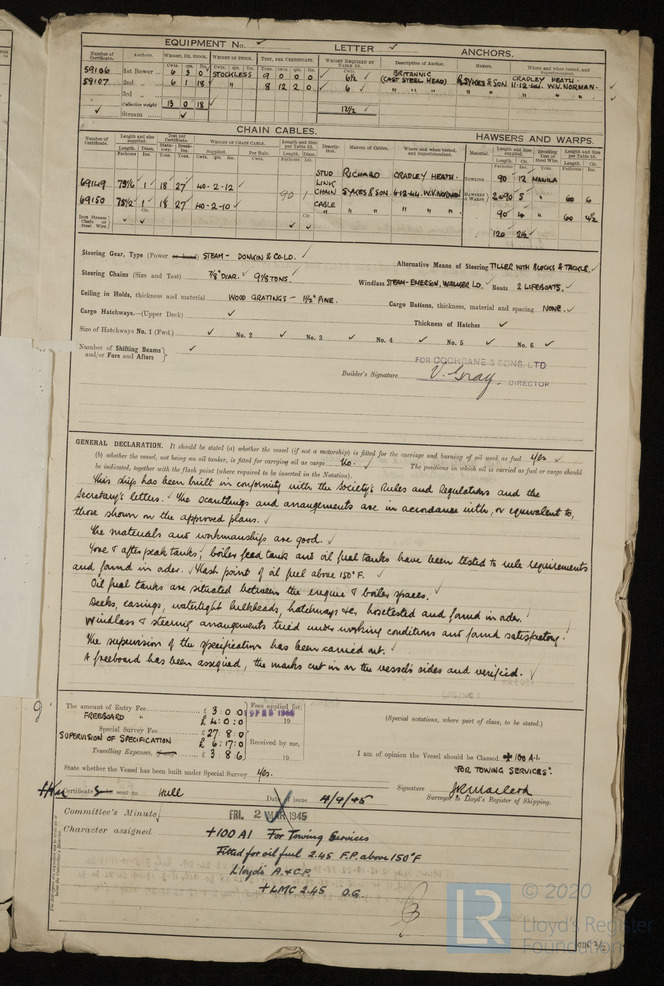 EQUIPMENT No. LETTER ANCHORS.
Number of Certificate. Anchors. WEIGHT, EX. STOCK. WEIGHT OF STOCK. TEST, PER CERTIFICATE. WEIGHT REQUIRED BY TABLE 53. Description of Anchor. Makers. Where and when tested, and Superintendent.
59106 1st Bower 6 3 0 STOCKLESS 9 0 0 0 6½ BRITANNIC (CAST STEEL HEAD) R. SYKES & SON CRADLEY HEATH
59107 2nd " 6 1 18 " 8 12 2 0 6 " " " " " 11-12-44. W.V. NORMAN
3rd "
Collective weight 13 0 18 12½
Stream
CHAIN CABLES. HAWSERS AND WARPS.
Number of Certificate. Length and size supplied. Test per Certificate. WEIGHT OF CHAIN CABLE. Length and size per Table 53. Description. Makers of Cables. Where and when tested, and Superintendent. Material Length and size supplied. Breaking Test of Steel Wire. Length and size per Table 53.
69149 75⅛ 1 18 27 40-2-12 90 1 STUD LINK CHAIN CABLE RICHARD SYKES & SON CRADLEY HEATH 6-12-44. W.V. NORMAN
69150 75½ 1 18 27 40-2-10 " " " "
TOWLINE 90 12 MANILA
HAWSERS & WARPS 2@90 5 " 60 6
90 4 " 60 4½
120 2½
Iron Stream Chain or Steel Wire
Steering Gear, Type (Power or hand) STEAM - DONKIN & CO LD. Alternative Means of Steering TILLER WITH BLOCKS & TACKLE.
Steering Chains (Size and Test) 7/8" DIAR. 9⅛ TONS. Windlass STEAM-EMERSON, WALKER LD. Boats 2 LIFEBOATS.
Ceiling in Holds, thickness and material WOOD GRATINGS - 1½" PINE. Cargo Battens, thickness, material and spacing NONE.
Cargo Hatchways.—(Upper Deck) Thickness of Hatches
Size of Hatchways No. 1 (Fwd.) No. 2 No. 3 No. 4 No. 5 No. 6
Number of Shifting Beams and/or Fore and Afters
FOR COCHRANE & SONS. LTD
Builder's Signature V. Gray. DIRECTOR
GENERAL DECLARATION. It should be stated (a) whether the vessel (if not a motorship) is fitted for the carriage and burning of oil used as fuel Yes.
(b) whether the vessel, not being an oil tanker, is fitted for carrying oil as cargo No. The positions in which oil is carried as fuel or cargo should
be indicated, together with the flash point (where required to be inserted in the Notation).
This ship has been built in conformity with the Society's Rules and Regulations and the
Secretary's letters. The scantlings and arrangements are in accordance with, or equivalent to,
those shown on the approved plans.
The materials and workmanship are good.
Fore & after peak tanks, boiler feed tank and oil fuel tanks have been tested to rule requirements
and found in order. Flash point of oil fuel above 150°F.
Oil fuel tanks are situated between the engine & boiler spaces.
Decks, casings, watertight bulkheads, hatchways etc, hosetested and found in order.
Windlass & steering arrangements tried under working conditions and found satisfactory.
The supervision of the specification has been carried out.
A freeboard has been assigned, the marks cut in on the vessel's sides and verified.
The amount of Entry Fee £ 3:0:0 Fees applied for,
FREEBOARD " £ 4:0:0 19
Special Survey Fee £ 27:8:0
SUPERVISION OF SPECIFICATION £ 6:17:0 Received by me,
Travelling Expenses £ 3:8:6 19
(Special notations, where part of class, to be stated.)
I am of opinion the Vessel should be Classed ✠ 100 A.1.
"FOR TOWING SERVICES".
State whether the Vessel has been built under Special Survey Yes.
Signature
Surveyor to Lloyd's Register of Shipping.
Certificate sent to Hull Date of issue 4/9/45
Committee's Minute FRI. 2 MAR 1945
Character assigned +100A1 For Towing Services
Fitted for oil fuel 2.45 F.P. above 150°F
Lloyd's A.&C.P.
+LMC 2.45 O.G.
LR © 2020
Lloyd's Register
Foundation